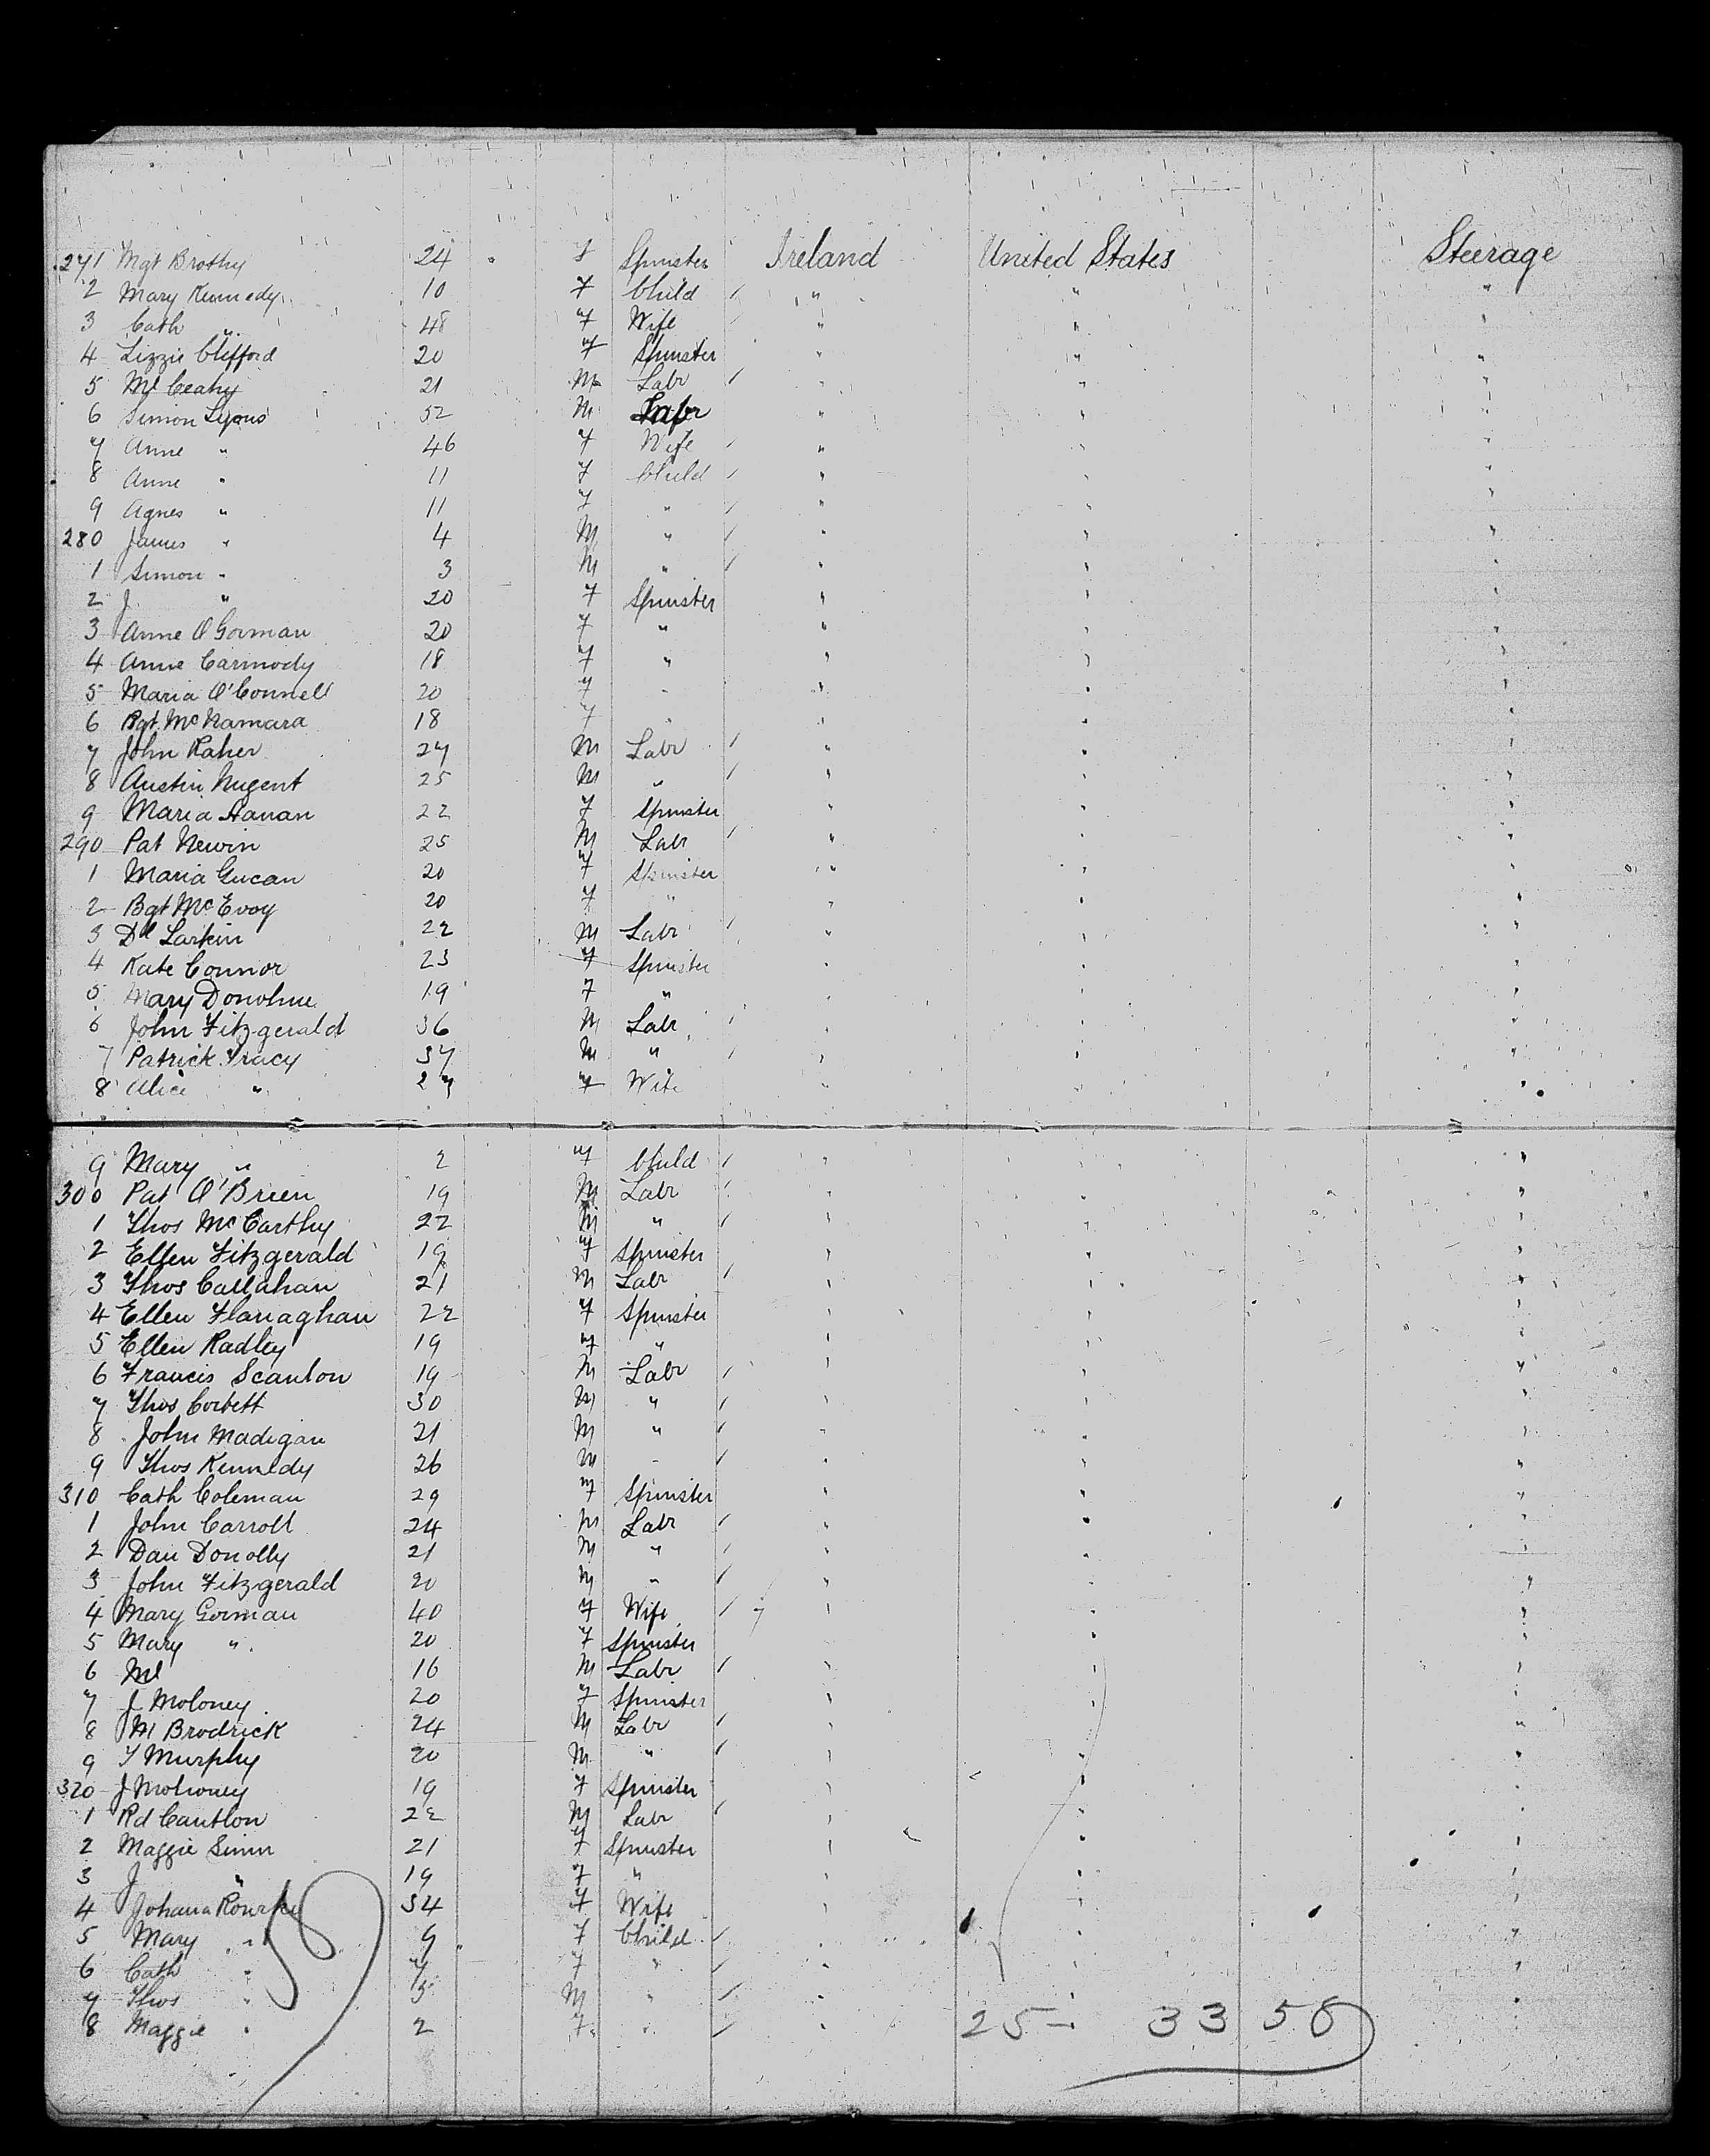 271 Mgt Brothy 24 f Spinster Ireland United States Steerage
2 Mary Kennedy 10 f Child " " "
3 Cath " 48 f Wife " " "
4 Lizzie Clifford 20 f Spinster " " "
5 Ml Ceahy 21 M Labr " " "
6 Simon Lyons 52 M Labr " " "
7 Anne " 46 f Wife " " "
8 Anne " 11 f Child " " "
9 Agnes " 11 f " " " "
280 James " 4 M " " " "
1 Simon " 3 M " " " "
2 J " 20 f Spinster " " "
3 Anne O'Gorman 20 f " " " "
4 Anne Carmody 18 f " " " "
5 Maria O'Connell 20 f " " " "
6 Bgt McNamara 18 f " " " "
7 John Raher 27 M Labr " " "
8 Austin Nugent 25 M " " " "
9 Maria Hanan 22 f Spinster " " "
290 Pat Newin 25 M Labr " " "
1 Maria Gucan 20 f Spinster " " "
2 Bgt McEvoy 20 f " " " "
3 Dl Larkin 22 M Labr " " "
4 Kate Connor 23 f Spinster " " "
5 Mary Donohue 19 f " " " "
6 John Fitzgerald 36 M Labr " " "
7 Patrick Tracy 37 M " " " "
8 Alice " 27 f Wife " " "
9 Mary " 2 f Child " " "
300 Pat O'Brien 19 M Labr " " "
1 Thos McCarthy 22 M " " " "
2 Ellen Fitzgerald 19 f Spinster " " "
3 Thos Callahan 21 M Labr " " "
4 Ellen Flanaghan 22 f Spinster " " "
5 Ellen Radley 19 f " " " "
6 Francis Scanlon 19 M Labr " " "
7 Thos Corbett 30 M " " " "
8 John Madigan 21 M " " " "
9 Thos Kennedy 26 M " " " "
310 Cath Coleman 29 f Spinster " " "
1 John Carroll 24 M Labr " " "
2 Dan Donolly 21 M " " " "
3 John Fitzgerald 20 M " " " "
4 Mary Gorman 40 f Wife " " "
5 Mary " 20 f Spinster " " "
6 Ml 16 M Labr " " "
7 J Moloney 20 f Spinster " " "
8 M Brodrick 24 M Labr " " "
9 T Murphy 20 M " " " "
320 J Mohoney 19 f Spinster " " "
1 Rd Cantlon 22 M Labr " " "
2 Maggie Sinin 21 f Spinster " " "
3 J " 19 f " " " "
4 Johana Rourke 34 f Wife " " "
5 Mary " 9 f Child " " "
6 Cath " 7 f " " " "
7 Thos " 5 M " " " "
8 Maggie " 2 f " " "
25 - 33 58